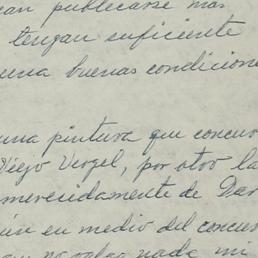 publicarse más
tengan suficiente
buenas condicione
una pintura que concur
Viejo Vergel, por otro la
merecidamente de Dar
en medio del concur
que no valgo nada mi